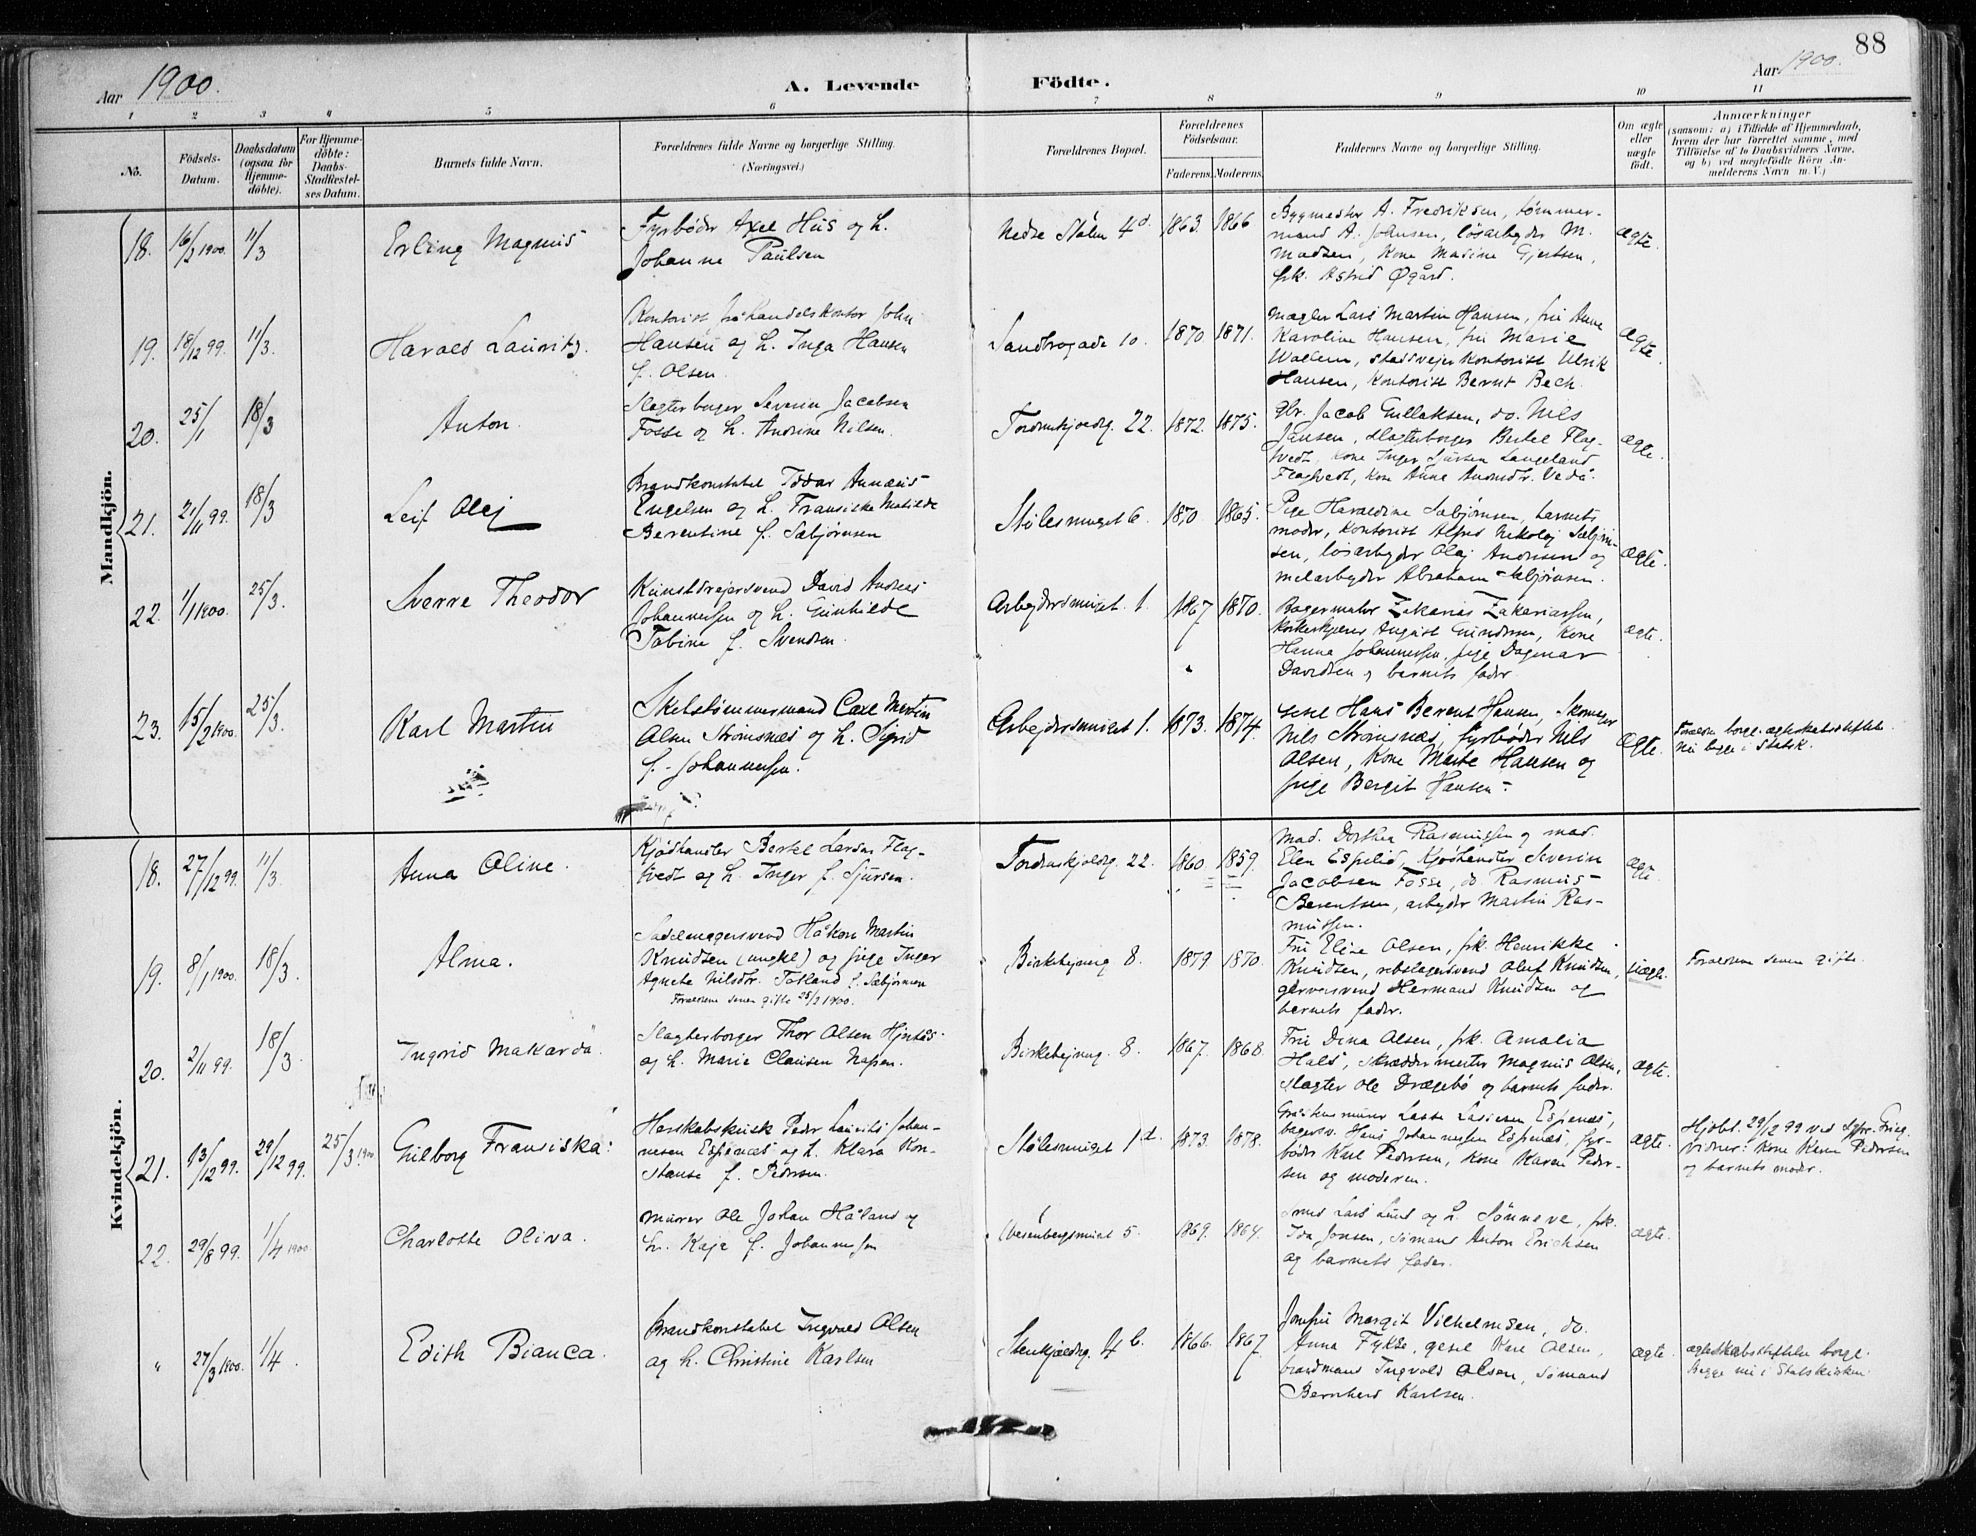 88
Aar 1900.
A. Levende Födte.
Aar 1900.
1 2 3 4 5 6 7 8 9 10 11
No.
Födsels-Datum.
Daabsdatum (ogsaa for Hjemmedöbte).
For Hjemmedöbte: Daabs-Stadfæstelses Datum.
Barnets fulde Navn.
Forældrenes fulde Navne og borgerlige Stilling.
(Næringsvei.)
Forældrenes Bopæl.
Forældrenes Födselsaar.
Faderens. Moderens.
Faddernes Navne og borgerlige Stilling.
Om ægte eller uægte födt.
Anmærkninger
(saasom: a) i Tilfælde af Hjemmedaab,
hvem der har forrettet samme, med
Tilföielse af to Daabsvidners Navne,
og b) ved uægtefödte Börn An-
melderens Navn m. V.)
Mandkjön.
18. 16/2 1900. 11/3 Erling Magnus
Fyrbøder Axel Hus og h.
Johanne Paulsen
Nedre Stølen 4d 1863. 1866
Bygmester A. Fredriksen, tømmer-
mand A. Johnsen, løsarbeyder M.
Madsen, Kone Masine Gjertsen,
frk. Astrid Øgård.
ægte.
19. 18/12 99. 11/3. Harald Lauritz.
Kontorist på handelskontor John
Hansen og h. Inga Hansen
f. Olsen.
Sandbrogade 10. 1870. 1871.
Mægler Lars Martin Hansen, fru Anne
Karoline Hansen, fru Marie
Wallem, stadsvejer kontorist Ulrik
Hansen, kontorist Bernt Bech.
ægte.
20. 25/1 18/3 Anton.
Slagterborger Severin Jacobsen
Fosse og h. Andrine Nilsen.
Tordenskjoldg. 22. 1872. 1875.
Gbr. Jacob Gullaksen, do. Nils
Jansen, slagterborger Bertel Flag-
tvedt, kone Inger Sjursen Langeland
Flagtvedt, kone Anna
ægte.
21. 21/11 99. 18/3 Leif Olaf
Brandkonstabel Todar Annæus
Engelsen og h. Fransiska Matilde
Berentine f. Sæbjørnsen
Stølesmuget 6. 1870. 1865.
Pige Haraldine Sæbjørnsen, barnets
moder, kontorist Alfred Nikolaj Sæbjørn-
sen, løsarbeyder Olaj Andersen og
mélarbeyder Abraham Sæbjørnsen.
ægte.
22. 1/1 1900. 25/3. Sverre Theodor
Kunstdrejersvend David Andreas
Johannessen og h. Gunhilde
Tabine f. Svendsen.
Arbeydersmuget. 1. 1867 1870.
Bagermester Zakarias Zakariassen,
korkeskjærer August Gundersen, Kone
Hanna Johannessen, pige Dagmar
Davidsen og barnets fader.
ægte.
23. 15/2 1900. 25/3. Karl Martin
Skibstømmermand Carl Martin
Olsen Strømsnæs og h. Sigrid
f. Johannessen.
Arbeydersmuget 1. 1873. 1874.
Gesel Hans Berent Hansen, Skomager
Nils Strømsnæs, fyrbøder Nils
Olsen, Kone Marte Hansen og
pige Bergit Hansen.
ægte.
Forældre borgl. ægteskabsstiftelse
nu begge i Statsk.
Kvindekjön.
18. 27/12 99. 11/3. Anna Oline.
Kjødhandler Bertel Larsen Flag-
tvedt og h. Inger f. Sjursen.
Tordenskjoldg. 22. 1860. 1859.
Mad. Dorthea Rasmussen og mad.
Elen Espelid, Kjødhandler Severin
Jacobsen Fosse, do Rasmus
Berentsen, arbeyder Martin Ras-
mussen.
ægte.
19. 8/1 1900. 18/3. Alma.
Sadelmagersvend Håkon Martin
Knudsen (ungkl) og pige Inger
Agnete Nilsdr. Tolland f. Sæbjørnsen
Forældrene senere gifte 25/2 1900.
Birkehejveg 8. 1879 1870.
Fru Eline Olsen, frk. Henrikke
Knudsen, rebslagersvend Oluf Knudsen,
garversvend Hermand Knudsen og
barnets fader.
uægte.
Forældrene senere gifte.
20. 2/11 99. 18/3. Ingrid Makarda.
Slagterborger Thor Olsen Hjortås
og h. Marie Clausen Næssen.
Birkehejveg. 8. 1867. 1868.
Fru Dina Olsen, frk. Amalia
Hals, skræddermester Magnus Olsen,
slagter Ole Drægebø og barnets fader.
ægte.
21. 13/12 99. 29/12 99. 25/3 1900. Guilborg Fransiska.
Herskabskusk Peder Lauritz Johan-
nesen Espenæs og h. Klara Kon-
stanse f. Pedersen.
Stølesmuget 1d. 1873. 1878.
Gråstensmurer Lasse Lassesen Espenæs,
bagersv. Hans Johannessen Espenæs, fyr-
bøder Karl Pedersen, Kone Karen Peder-
sen og moderen.
ægte.
Hjdbt. 29/12 99 ved Sgpr. Grieg
vidner: Kone Karen Pedersen
og barnets moder.
22. 29/8 99. 1/4 1900 Charlotte Oliva.
Murer Ole Johan Håland og
h. Kaja f. Johannessen
Wesenbergsmuget 5. 1869. 1864.
Smed Lars Lund og h. Sønneve, frk.
Ida Jonsen, sømand Anton Ericksen
og barnets fader.
ægte.
" 27/3 1900. 1/4. Edith Bianca.
Brandkonstabel Ingvald Olsen
og h. Christine Karlsen
Stenkjælderg. 4b. 1866. 1867.
Jomfru Margit Vilhelmsen, do.
Anna Fykse, gesel Karl Olsen,
brandmand Ingvald Olsen, Sømand
Bernhard Karlsen.
ægte.
ægteskabsstiftelse borgl.
Begge nu i Statskirken